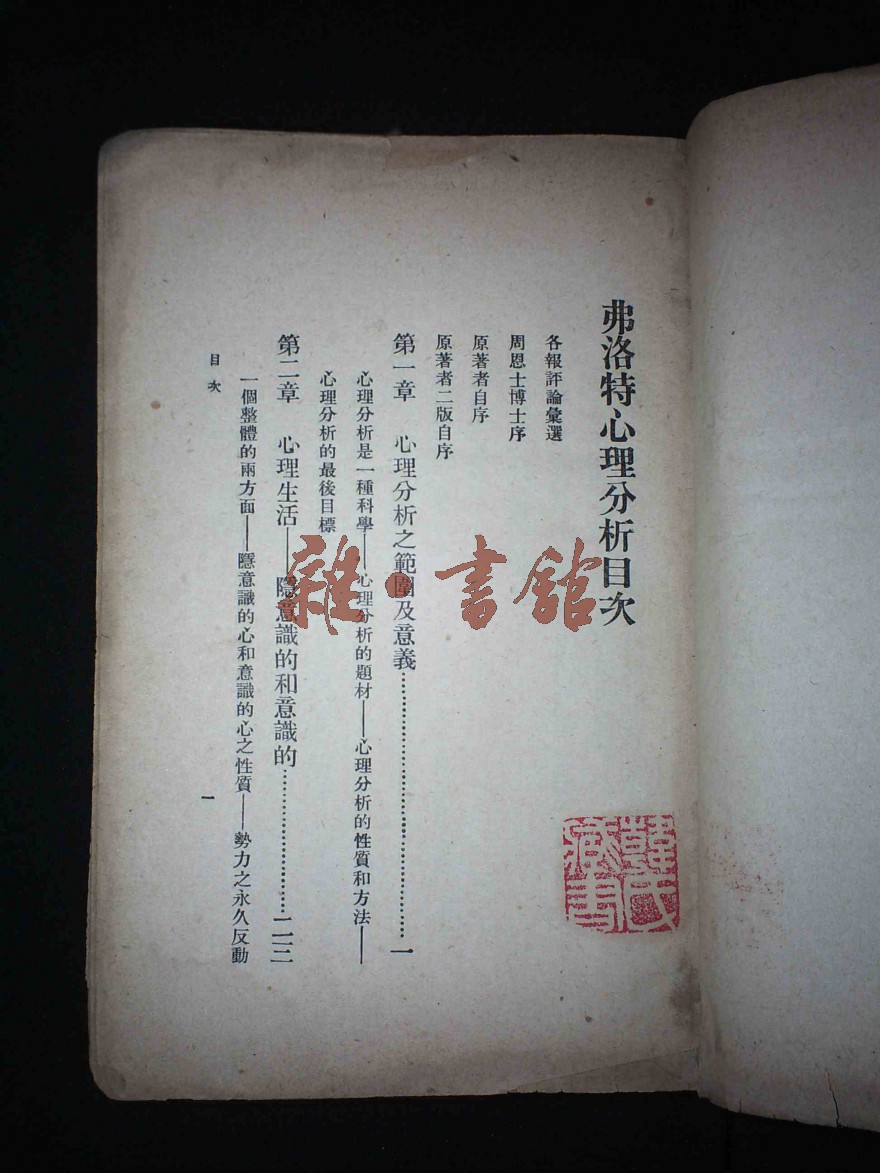 弗洛特心理分析目次
各報評論彙選
周恩士博士序
原著者自序
原著者二版自序
第一章　心理分析之範圍及意義……………………一
心理分析是一種科學——心理分析的題材——心理分析的性質和方法——
心理分析的最後目標
第二章　心理生活——隱意識的和意識的……………二三
一個整體的兩方面——隱意識的心和意識的心之性質——勢力之永久反動
目次
一
雜·書館
韓氏
藏書